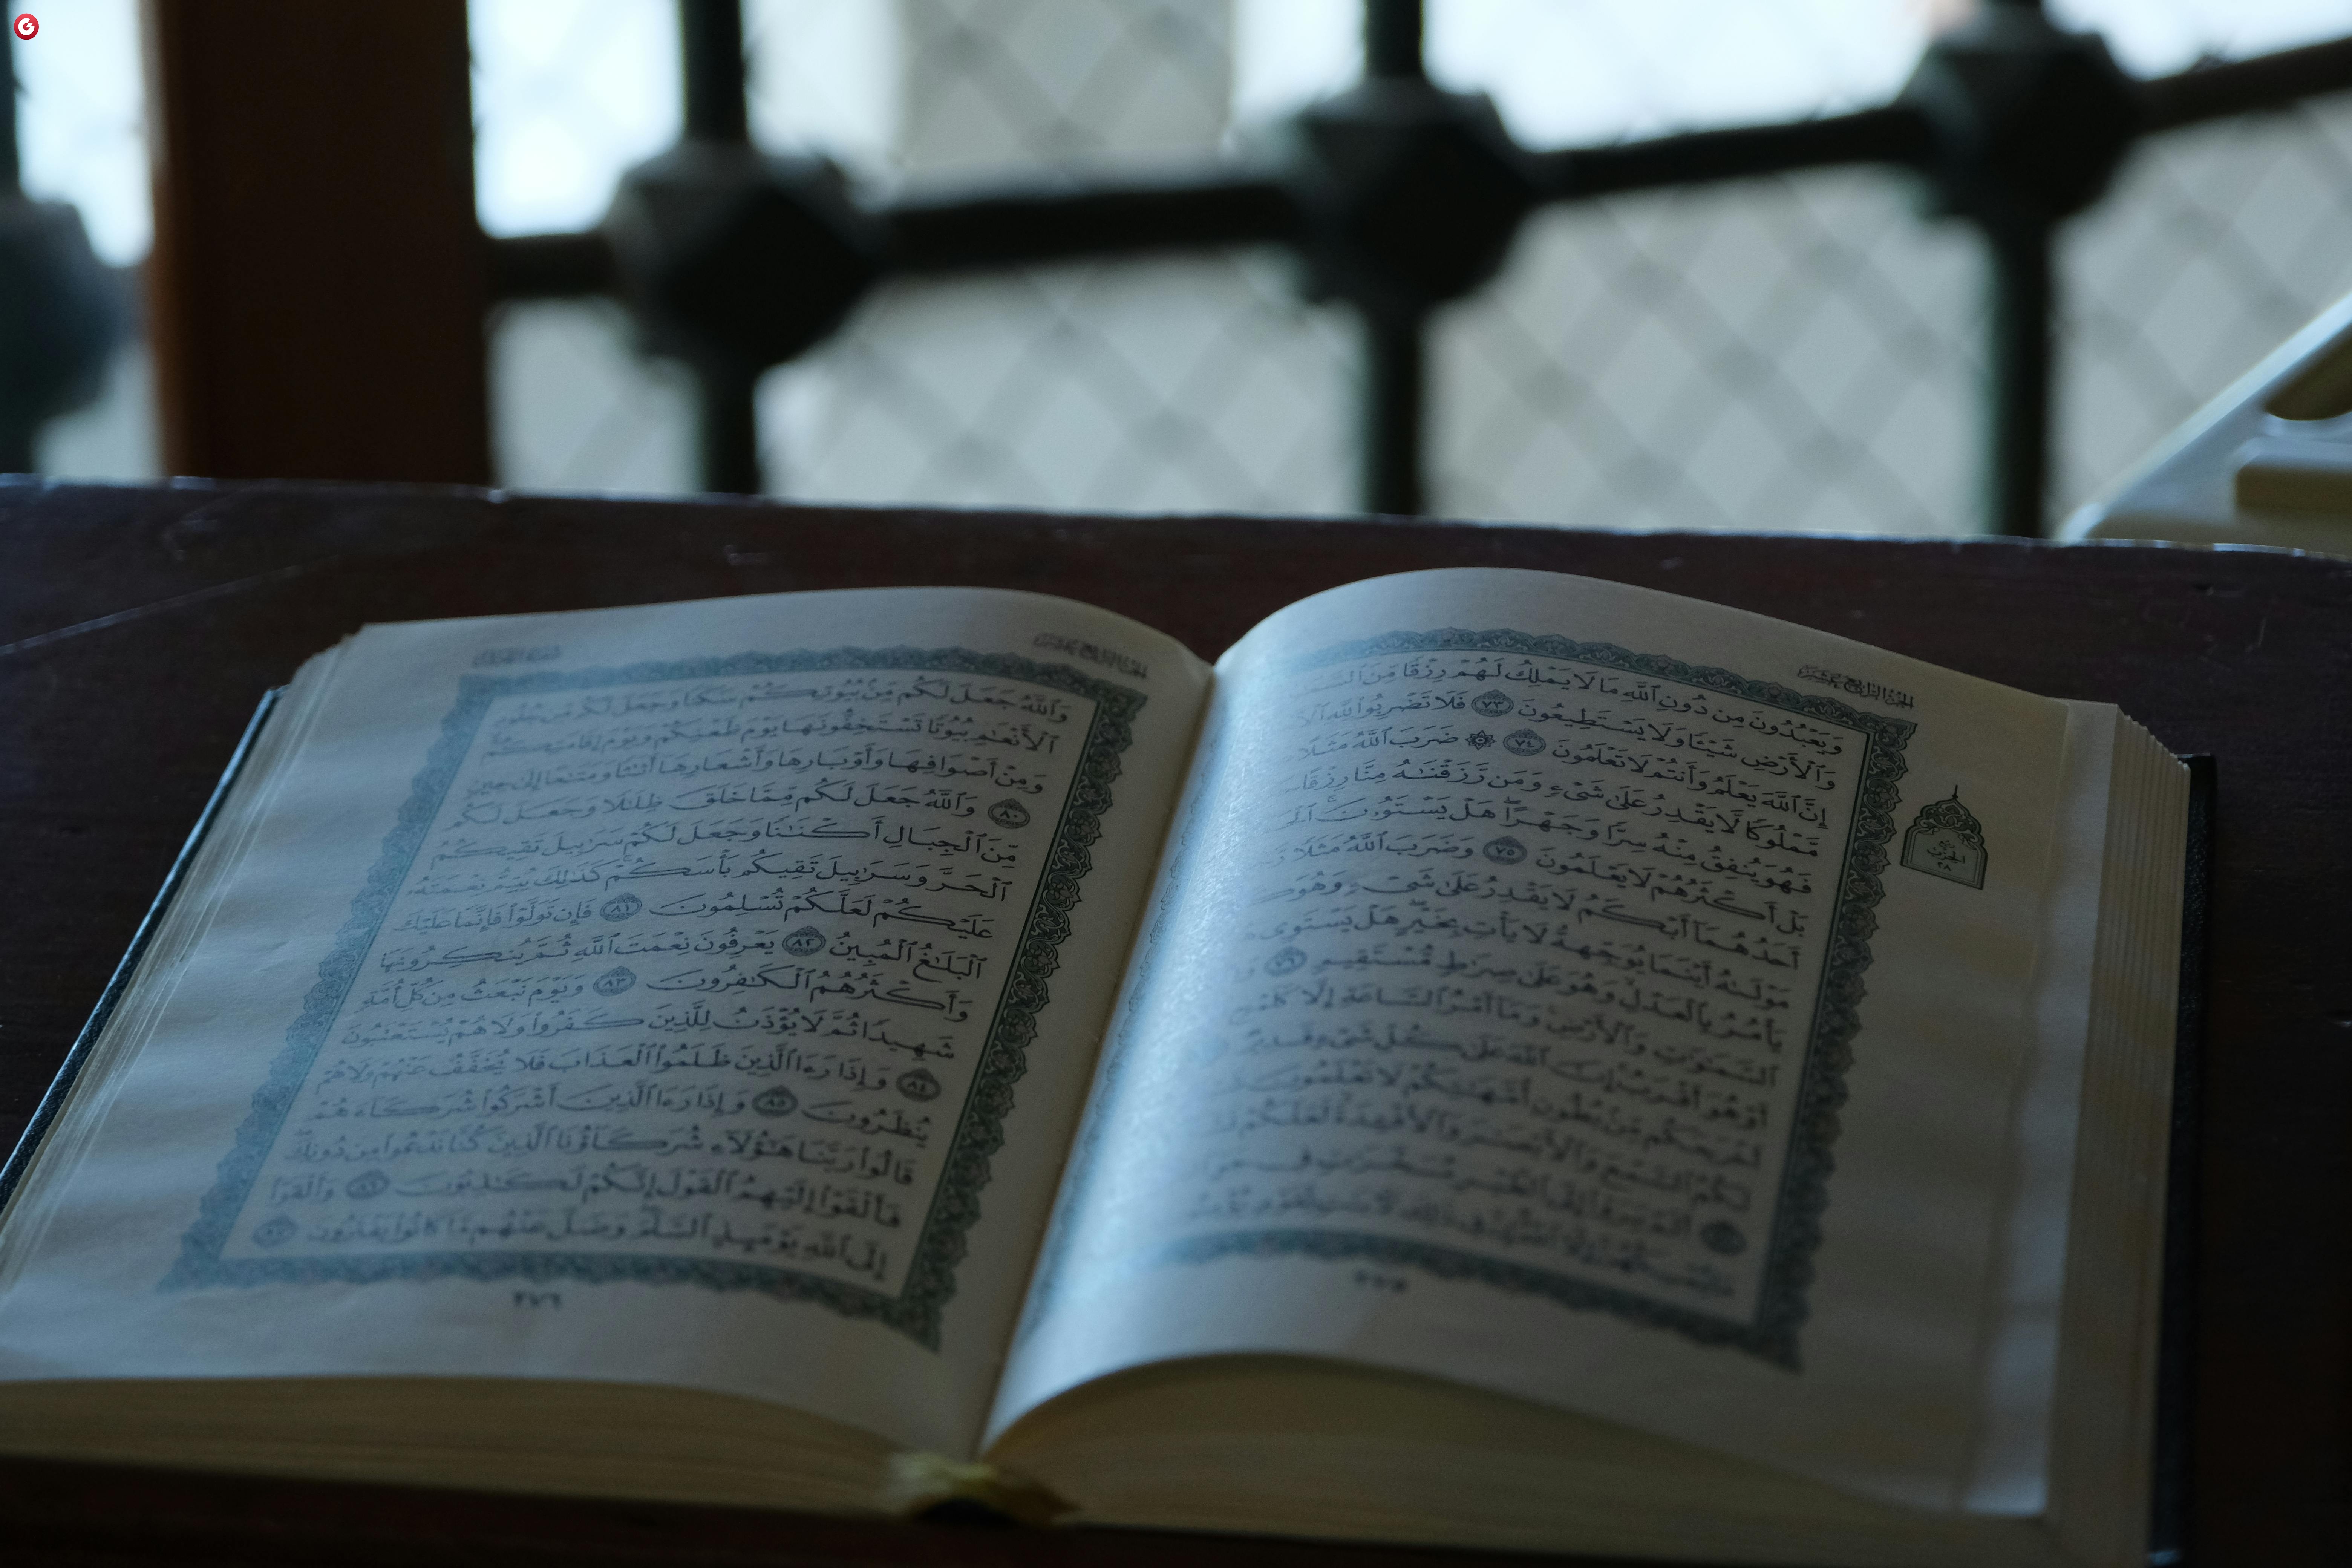 الجزء الرابع عشر
وَيَعْبُدُونَ مِن دُونِ ٱللَّهِ مَا لَا يَمْلِكُ لَهُمْ رِزْقًا مِّنَ
وَٱلْأَرْضِ شَيْـًٔا وَلَا يَسْتَطِيعُونَ ٧٣ فَلَا تَضْرِبُوا۟ لِلَّهِ
إِنَّ ٱللَّهَ يَعْلَمُ وَأَنتُمْ لَا تَعْلَمُونَ ٧٤ ۞ ضَرَبَ ٱللَّهُ مَثَلًا
مَّمْلُوكًا لَّا يَقْدِرُ عَلَىٰ شَىْءٍ وَمَن رَّزَقْنَـٰهُ مِنَّا رِزْقًا
فَهُوَ يُنفِقُ مِنْهُ سِرًّا وَجَهْرًا ۖ هَلْ يَسْتَوُۥنَ ۚ
بَلْ أَكْثَرُهُمْ لَا يَعْلَمُونَ ٧٥ وَضَرَبَ ٱللَّهُ مَثَلًا
أَحَدُهُمَآ أَبْكَمُ لَا يَقْدِرُ عَلَىٰ شَىْءٍ وَهُوَ
مَوْلَىٰهُ أَيْنَمَا يُوَجِّههُّ لَا يَأْتِ بِخَيْرٍ ۖ هَلْ يَسْتَوِى
يَأْمُرُ بِٱلْعَدْلِ ۙ وَهُوَ عَلَىٰ صِرَٰطٍ مُّسْتَقِيمٍ ٧٦
ٱلسَّمَـٰوَٰتِ وَٱلْأَرْضِ ۚ وَمَآ أَمْرُ ٱلسَّاعَةِ إِلَّا كَلَمْحِ
أَوْ هُوَ أَقْرَبُ ۚ إِنَّ ٱللَّهَ عَلَىٰ كُلِّ شَىْءٍ قَدِيرٌ
أَخْرَجَكُم مِّنۢ بُطُونِ أُمَّهَـٰتِكُمْ لَا تَعْلَمُونَ
لَكُمُ ٱلسَّمْعَ وَٱلْأَبْصَـٰرَ وَٱلْأَفْـِٔدَةَ ۙ لَعَلَّكُمْ
أَلَمْ يَرَوْا۟ إِلَى ٱلطَّيْرِ مُسَخَّرَٰتٍ فِى
٢٧٥
الحزب
٢٨
الجزء الرابع عشر
وَٱللَّهُ جَعَلَ لَكُم مِّنۢ بُيُوتِكُمْ سَكَنًا وَجَعَلَ لَكُم مِّن جُلُودِ
ٱلْأَنْعَـٰمِ بُيُوتًا تَسْتَخِفُّونَهَا يَوْمَ ظَعْنِكُمْ وَيَوْمَ إِقَامَتِكُمْ ۙ
وَمِنْ أَصْوَافِهَا وَأَوْبَارِهَا وَأَشْعَارِهَآ أَثَـٰثًا وَمَتَـٰعًا إِلَىٰ حِينٍ
٨٠ وَٱللَّهُ جَعَلَ لَكُم مِّمَّا خَلَقَ ظِلَـٰلًا وَجَعَلَ لَكُم
مِّنَ ٱلْجِبَالِ أَكْنَـٰنًا وَجَعَلَ لَكُمْ سَرَٰبِيلَ تَقِيكُمُ
ٱلْحَرَّ وَسَرَٰبِيلَ تَقِيكُم بَأْسَكُمْ ۚ كَذَٰلِكَ يُتِمُّ نِعْمَتَهُۥ
عَلَيْكُمْ لَعَلَّكُمْ تُسْلِمُونَ ٨١ فَإِن تَوَلَّوْا۟ فَإِنَّمَا عَلَيْكَ
ٱلْبَلَـٰغُ ٱلْمُبِينُ ٨٢ يَعْرِفُونَ نِعْمَتَ ٱللَّهِ ثُمَّ يُنكِرُونَهَا
وَأَكْثَرُهُمُ ٱلْكَـٰفِرُونَ ٨٣ وَيَوْمَ نَبْعَثُ مِن كُلِّ أُمَّةٍ
شَهِيدًا ثُمَّ لَا يُؤْذَنُ لِلَّذِينَ كَفَرُوا۟ وَلَا هُمْ يُسْتَعْتَبُونَ
٨٤ وَإِذَا رَءَا ٱلَّذِينَ ظَلَمُوا۟ ٱلْعَذَابَ فَلَا يُخَفَّفُ عَنْهُمْ وَلَا هُمْ
يُنظَرُونَ ٨٥ وَإِذَا رَءَا ٱلَّذِينَ أَشْرَكُوا۟ شُرَكَآءَهُمْ
قَالُوا۟ رَبَّنَا هَـٰٓؤُلَآءِ شُرَكَآؤُنَا ٱلَّذِينَ كُنَّا نَدْعُوا۟ مِن دُونِكَ ۖ
فَأَلْقَوْا۟ إِلَيْهِمُ ٱلْقَوْلَ إِنَّكُمْ لَكَـٰذِبُونَ ٨٦ وَأَلْقَوْا۟
إِلَى ٱللَّهِ يَوْمَئِذٍ ٱلسَّلَمَ ۖ وَضَلَّ عَنْهُم مَّا كَانُوا۟ يَفْتَرُونَ ٨٧
٢٧٦